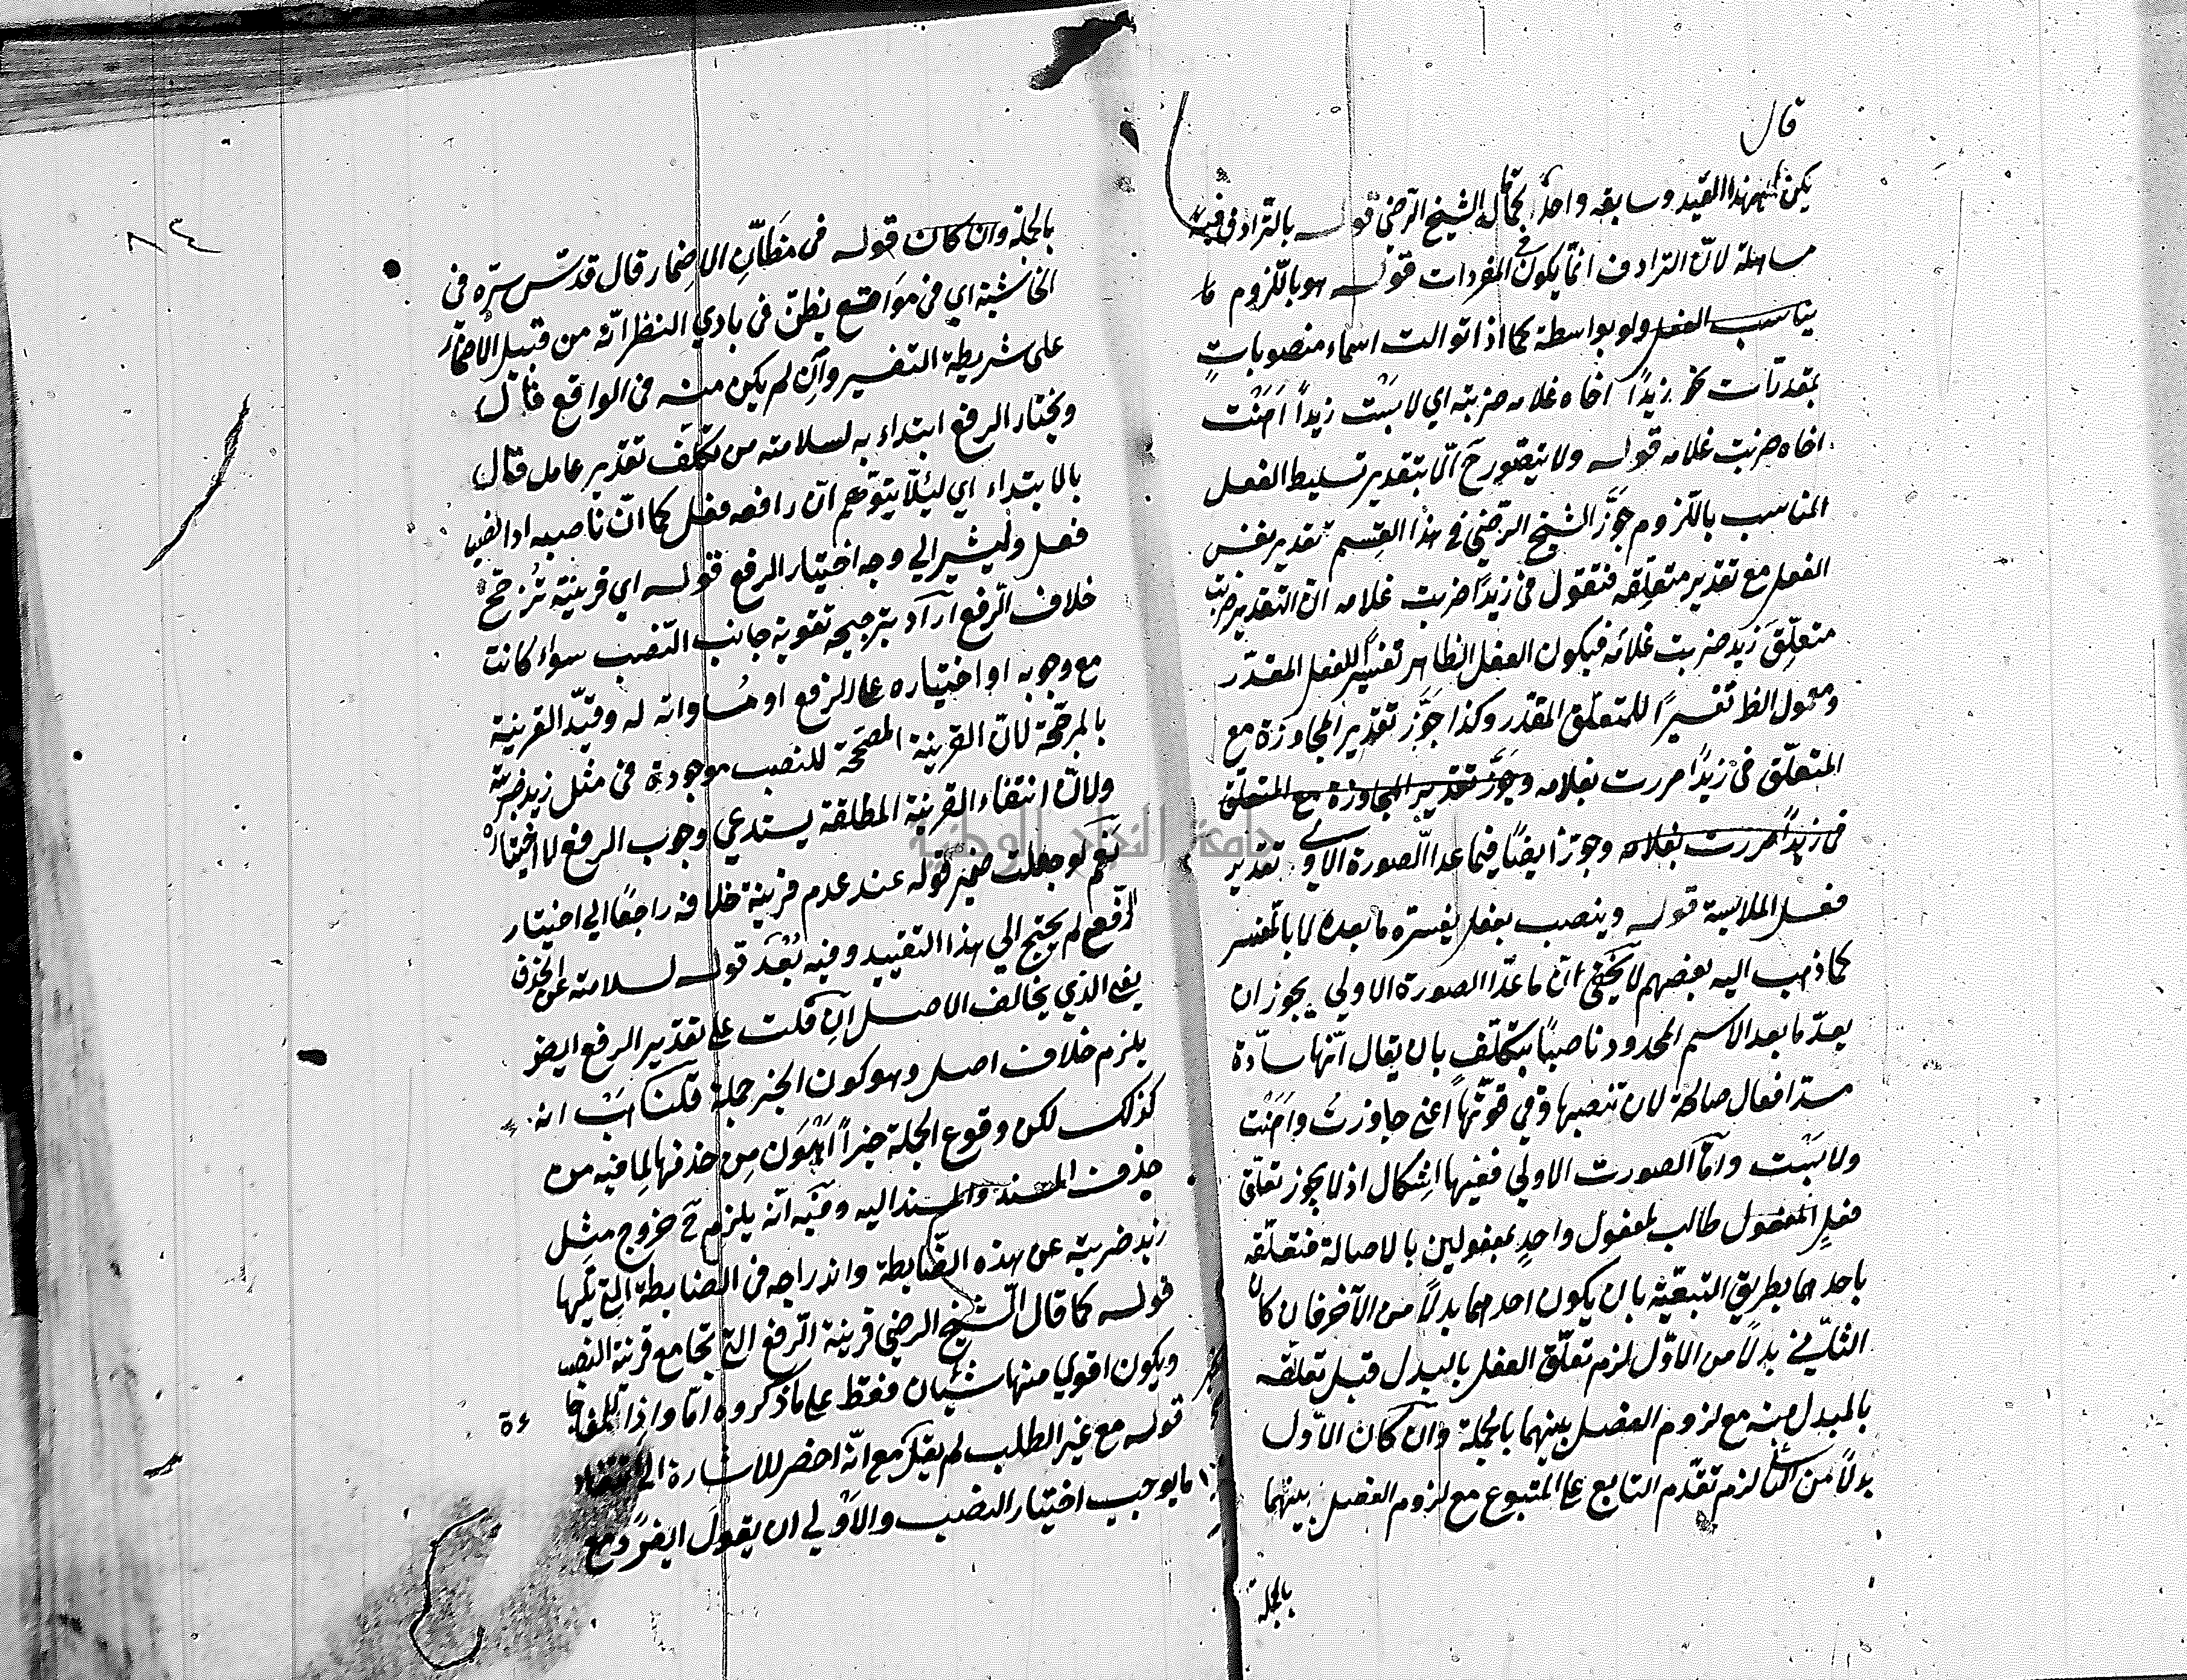 قال
يكن بهذا القيد وسابقه واحدا كما قال الشيخ الرضي قوله بالترادف فيه
مساهلة لانّ الترادف انّما يكون في المفردات قوله هو باللّزوم ما
يناسب الفعل ولو بواسطة كما اذا توالت اسماء منصوبات
بمقدّرات نحو زيدًا اخاه غلامه ضربته اي لابَسْت زيدًا اَهَنْت
اخاه ضربت غلامه قوله ولا يتصوّر ح الّا بتقدير تسليط الفعل
المناسب باللّزوم جوّز الشيخ الرّضيّ في هذا القِسم تقدير نفس
الفعل مع تقدير متعلّقه فتقول في زيدًا ضربت غلامه انّ التقدير ضربت
متعلّقَ زيد ضربت غلامَه فيكون الفعل الظاهر تفسيرًا للفعل المقدّر
ومعمول الظ تفسيرًا للمتعلّق المقدّر وكذا جوّز تقدير المجاوزة مع
المتعلّق في زيدًا مررت بغلامه وجوّز تقدير المجاوزة مع المتعلّق
في زيدًا مررت بغلامه وجوّز ايضًا فيما عدا الصورة الاولى تقدير
فعل الملابسة قوله وينصب بفعل يفسّره ما بعده لا بالمفسر
كما ذهب اليه بعضهم لا يخفى انّ ما عدا الصورة الاولي يجوز ان
يعدّ ما بعد الاسم المحدود ناصبًا بتكلّفٍ بان يقال انّها سادّة
مسدّ افعال صالحة لان تنصبها وفي قوّتها اعنى جاوزتُ واَهَنْت
ولابَسْت وامّا الصورت الاولي ففيها اِشكال اذ لا يجوز تعلّق
فعلٍ طالب لمفعول واحدٍ بمفعولين بالاصالة فتعلّقه
باحدهما بطريق التبعيّة بان يكون احدهما بدلًا من الآخر فان كان
الثاني بدلًا من الاوّل لزم تعلّق الفعل بالبدل قبل تعلّقه
بالمبدل منه مع لزوم الفصل بينهما بالجملة وان كان الاوّل
بدلًا من الثاني لزم تقدّم التابع على المتبوع مع لزوم الفصل بينهما
بالجملة
٨٤
بالجملة وان كان قوله في مَظَانّ الاِضمار قال قدّس سرّه في
الحاشية اي في مواقع يظنّ في بادي النظر انّه من قبيل الاضمار
على شريطة التفسير وان لم يكن منه في الواقع قال
ويختار الرفع ابتداء به لسلامته من تكلّف تقدير عامل قال
بالابتداء اي ليئلّا يتوّهم انّ رافعه فعل كما انّ ناصبه اذا نصب
فعل وليشير الي وجه اختيار الرفع قوله اي قرينة تُرجّح
خلاف الرّفع اراد بترجيحه تقوية جانب النّصب سواء كانت
مع وجوبه او اختياره على الرفع او مُساواته له وقيّد القرينة
بالمرجّحة لانّ القرينة المصحّحة للنصب موجودة في مثل زيد ضربته
ولانّ انتفاء القرينة المطلقة يستدعي وجوب الرفع لا اختياره
نعم لو جعلت ضمير قوله عند عدم قرينة خلافه راجعًا الي اختيار
الرّفع لم يحتج الي هذا التقييد وفيه بُعْد قوله لسلامته عن الحذف
يعنى الذي يخالف الاصل اِن قلت على تقدير الرفع ايضًا
يلزم خلاف اصل وهو كون الخبر جملة قلنا هَبْ انه
كذلك لكن وقوع الجملة خبرًا اَهْوَن مِن حذفها لِما فيه من
حذف المسند والمسند اليه وفيه انّه يلزم ح خروج مثل
زيد ضربته عن هذه الضّابطة واندراجه في الضابطة التي تليها
قوله كما قال الشيخ الرضي قرينة الرّفع التي تجامع قرينة النصب
ويكون اقوي منها شيئان فقط على ما ذكروه امّا واِذا للمفاجاءة
قوله مع غير الطلب لم يقل مع انّه اخصر للاشارة الي انتفاء
ما يوجب اختيار النصب والاَوْلي ان يقول ايضًا ومع